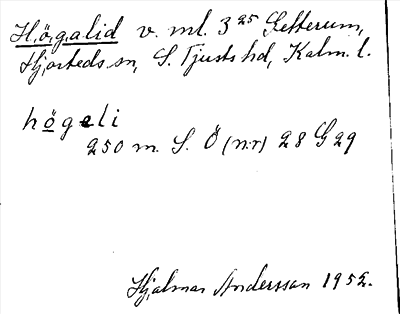 Högalid v. ml. 3 25 Getterum,
Hjorteds sn, S. Tjusts hd, Kalm. l.
högeli
250 m. S. Ö (nr) 28 G 29
Hjalmar Andersson 1952.